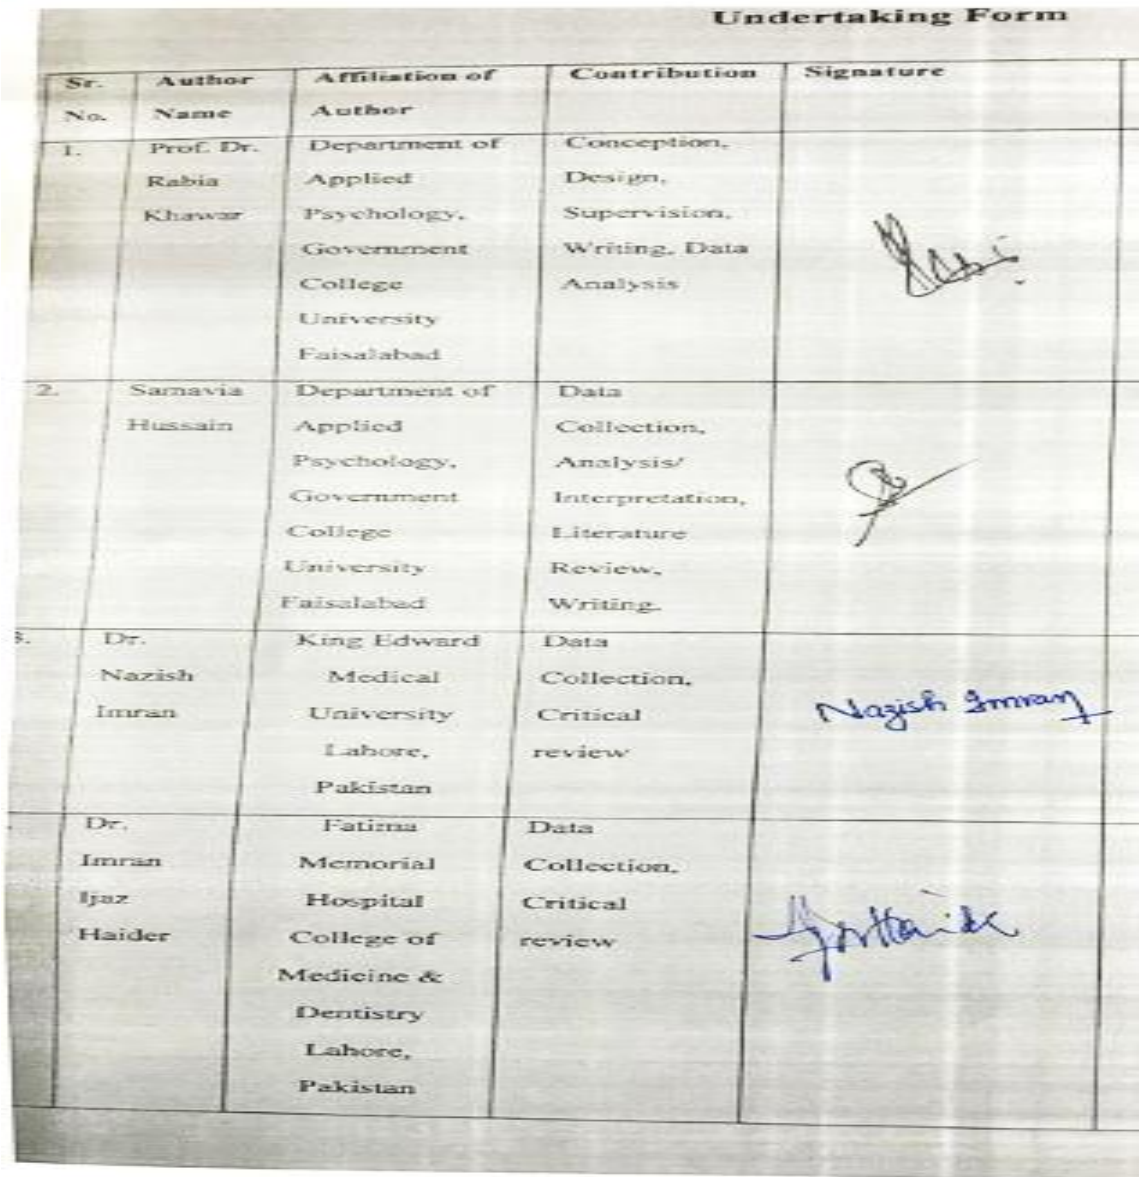 Undertaking Form
Sr. No. Author Name Affiliation of Author Contribution Signature
1. Prof. Dr. Rabia Khawar
Department of
Applied
Psychology,
Government
College
University
Faisalabad
Conception,
Design,
Supervision,
Writing, Data
Analysis
2. Samavia Hussain
Department of
Applied
Psychology,
Government
College
University
Faisalabad
Data
Collection,
Analysis/
Interpretation,
Literature
Review,
Writing.
3. Dr. Nazish Imran
King Edward
Medical
University
Lahore,
Pakistan
Data
Collection,
Critical
review
Nazish Imran
Dr. Imran Ijaz Haider
Fatima
Memorial
Hospital
College of
Medicine &
Dentistry
Lahore,
Pakistan
Data
Collection,
Critical
review